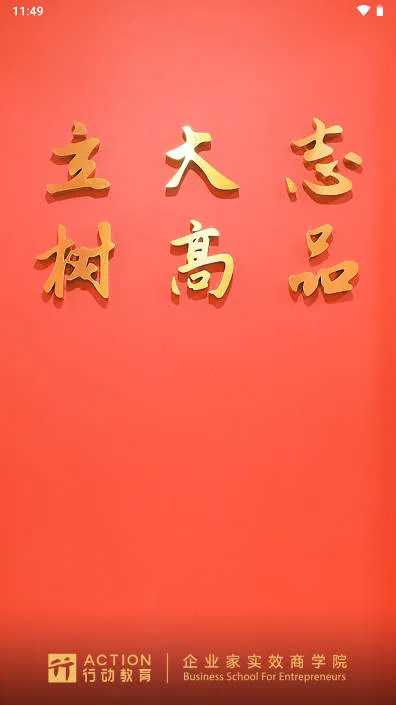 11:49
立大志
树高品
ACTION
行动教育
企业家实效商学院
Business School For Entrepreneurs